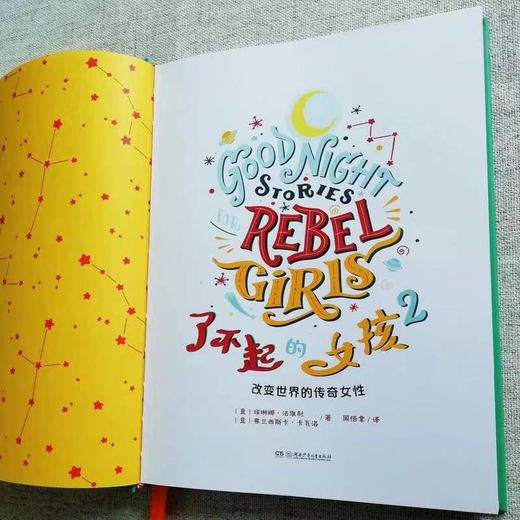 GOOD NIGHT
STORIES
FOR
REBEL
GIRLS
了不起的女孩2
改变世界的传奇女性
（意）埃琳娜·法维利
（意）弗兰西斯卡·卡瓦洛 / 著 周悟拿 / 译
湖南少年儿童出版社